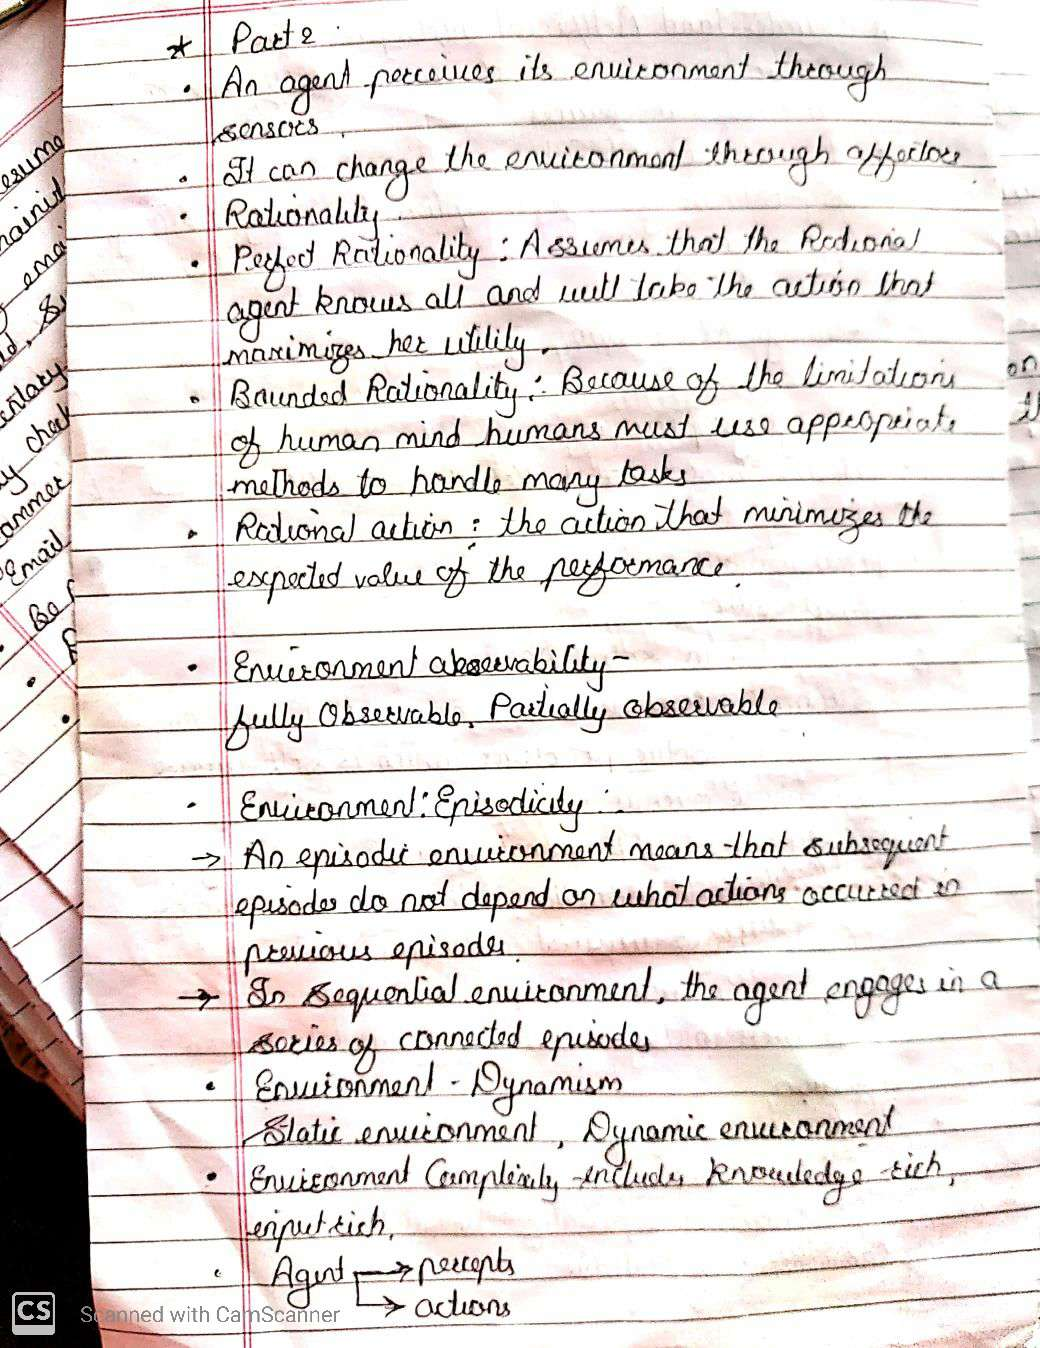 * Part 2
• An agent perceives its environment through
sensors.
• It can change the environment through affectors
• Rationality.
• Perfect Rationality : Assumes that the Rational
agent knows all and will take the action that
maximizes her utility.
• Bounded Rationality : Because of the limitations
of human mind humans must use appropriate
methods to handle many tasks
• Rational action : the action that minimizes the
expected value of the performance.
• Environment observability -
fully Observable, Partially observable
• Environment : Episodicity :
→ An episodic environment means that subsequent
episodes do not depend on what actions occurred in
previous episodes.
→ In Sequential environment, the agent engages in a
series of connected episodes
• Environment - Dynamism
Static environment, Dynamic environment
• Environment Complexity includes knowledge rich,
input rich,
• Agent → percepts
→ actions
esume
emai
Email
on
CS Scanned with CamScanner